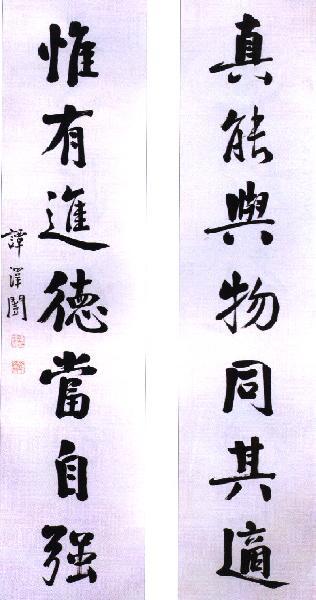 真能與物同其適
惟有進德當自强
譚澤闓